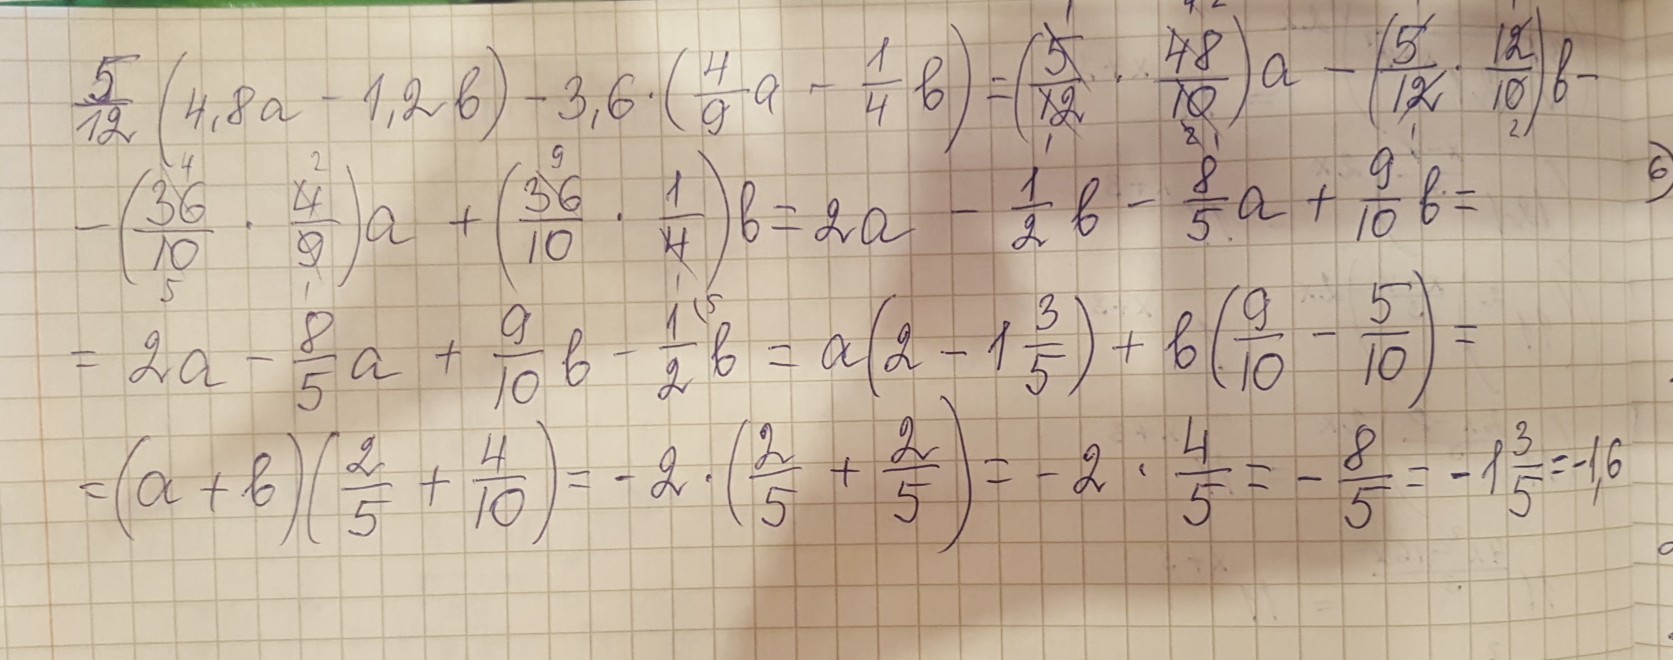 5/12 (4,8a - 1,2b) - 3,6 · (4/9 a - 1/4 b) = (5/12 · 48/10)a - (5/12 · 12/10)b -
- (36/10 · 4/9)a + (36/10 · 1/4)b = 2a - 1/2 b - 8/5 a + 9/10 b =
= 2a - 8/5 a + 9/10 b - 1/2 b = a(2 - 1 3/5) + b(9/10 - 5/10) =
= (a + b)(2/5 + 4/10) = -2 · (2/5 + 2/5) = -2 · 4/5 = - 8/5 = -1 3/5 = -1,6